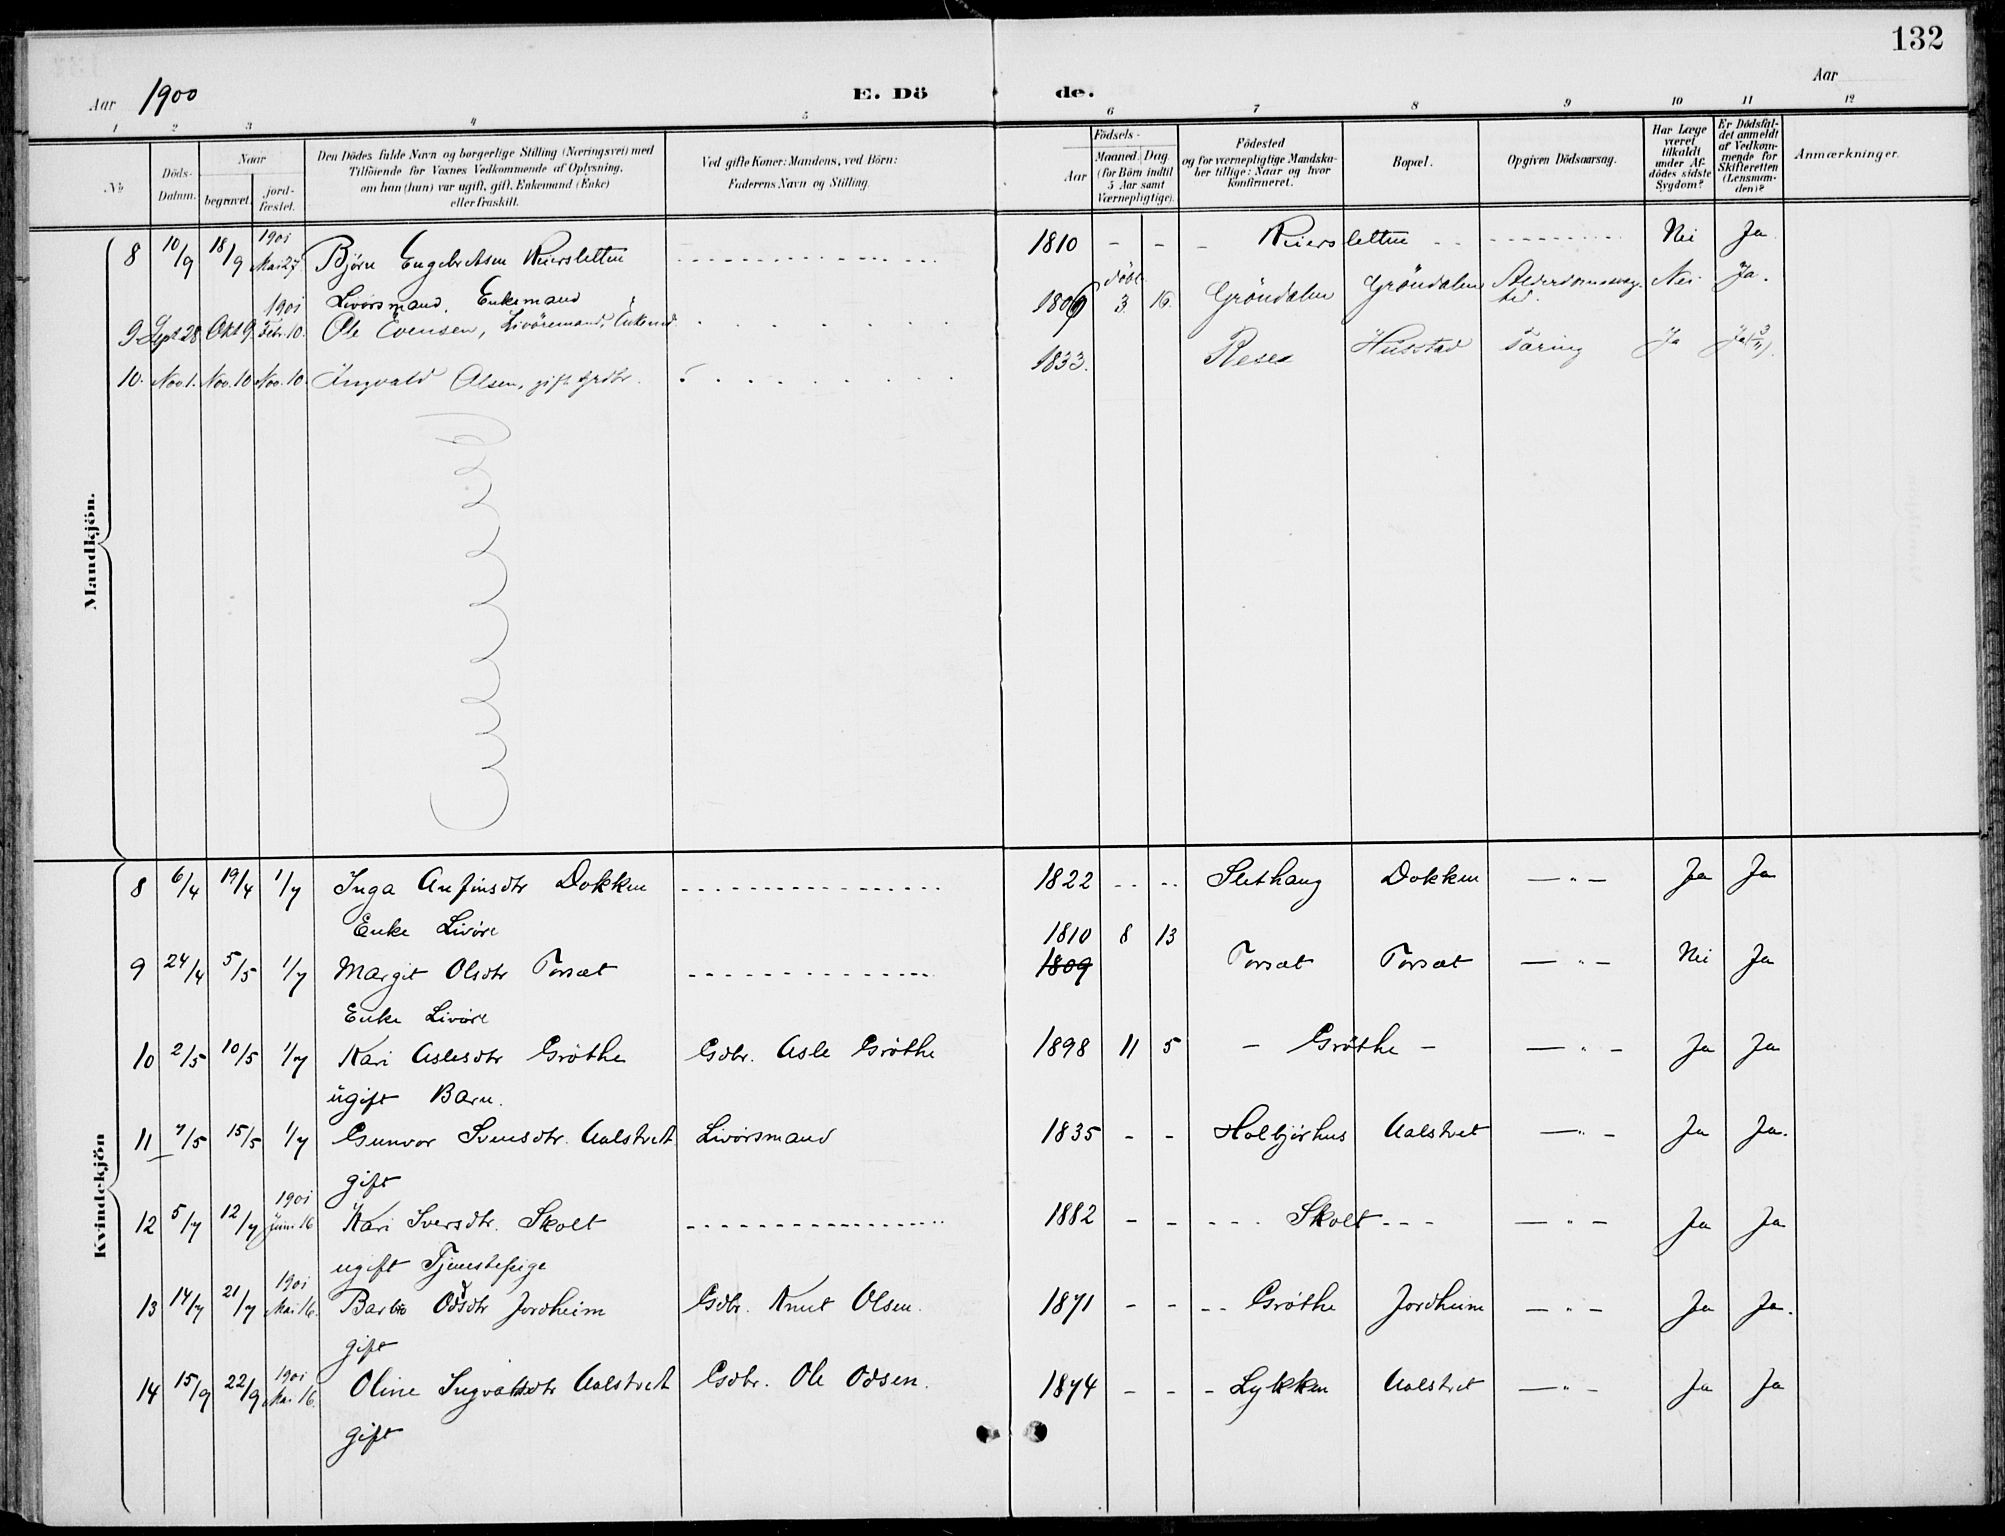 132
Aar 1900
E. Dö de.
Aar
1 2 3 4 5 6 7 8 9 10 11 12
No
Döds-Datum.
Naar
begravet.
jord-fæstet.
Den Dödes fulde Navn og borgerlige Stilling (Næringsvei) med
Tilföiende for Voxnes Vedkommende af Oplysning,
om han (hun) var ugift, gift, Enkemand (Enke)
eller fraskilt.
Ved gifte Koner: Mandens, ved Börn:
Faderens Navn og Stilling.
Födsels-
Aar
Maaned. Dag.
(for Börn indtil
5 Aar samt
Værnepligtige).
Födested
og for værnepligtige Mandska-
ber tillige: Naar og hvor
Konfirmeret.
Bopæl.
Opgiven Dödsaarsag.
Har Læge
været
tilkaldt
under Af-
dödes sidste
Sygdom?
Er Dödsfal-
det anmeldt
af Vedkom-
mende for
Skifteretten
(Lensman-
den)?
Anmærkninger.
Mandkjön.
8 10/9 18/9 1901 Mai 27 Björn Engebretsen Reiersletten 1810 - - - Reiersletten Nei Ja
Livörsmand. Enkemand
9 Sept 28 Okt 9. 1901 Febr. 10. Ole Evensen, Livöremand, Enkemd. 1809 döbt 3. 16. Gröndalen Gröndalen Nei Ja.
10. Nov. 1. Nov. 10 Nov. 10. Ingvald Olsen, gift Grdbr. 1833. Husstad Tæring Ja
Kvindekjön
8 6/4 19/4 1/7 Inga Anfinsdtr Dokken 1822 Slethaug Dokken — " — Ja Ja
Enke Livöre
9 24/4 5/5 1/7 Margit Olsdtr Torsæt 1810 8 13 1809 Torsæt Torsæt — " — Nei Ja
Enke Livöre
10 2/5 10/5 1/7 Kari Aslesdtr Gröthe Gdbr. Asle Gröthe 1898 11 5 - Gröthe - — " — Ja Ja
ugift Barn.
11 7/5 15/5 1/7 Gunvor Svensdtr. Aalstveit Livörsmand 1835 - - Holbjörhus Aalstvet — " — Ja Ja.
gift
12 5/7 12/7 1901 Juni 16 Kari Iversdtr. Skolt 1882 - - - - - Skolt - - - — " — Ja Ja
ugift Tjenestepige
13 14/7 21/7 1901 Mai 16. Barbo Odsdtr Jordheim Gdbr. Knut Olsen. 1871 - - - - Gröthe Jordheim — " — Ja Ja.
gift
14 15/9 22/9 1901 Mai 16. Oline Ingvalsdtr Aalstveit Gdbr. Ole Odsen. 1874 - - - Lykken Aalstvet — " — Ja Ja
gift